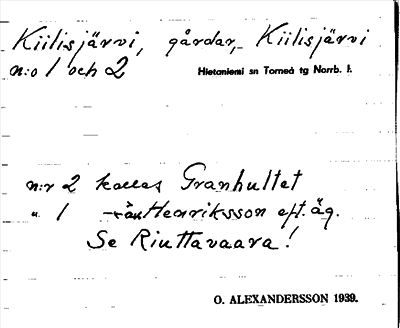 Kiilisjärvi, gårdar, Kiilisjärvi
n:o 1 och 2 Hietaniemi sn Torneå tg Norrb. l.
n:r 2 kallas Granhultet
" 1 Henriksson eft. äg.
Se Riuttavaara!
O. ALEXANDERSSON 1939.